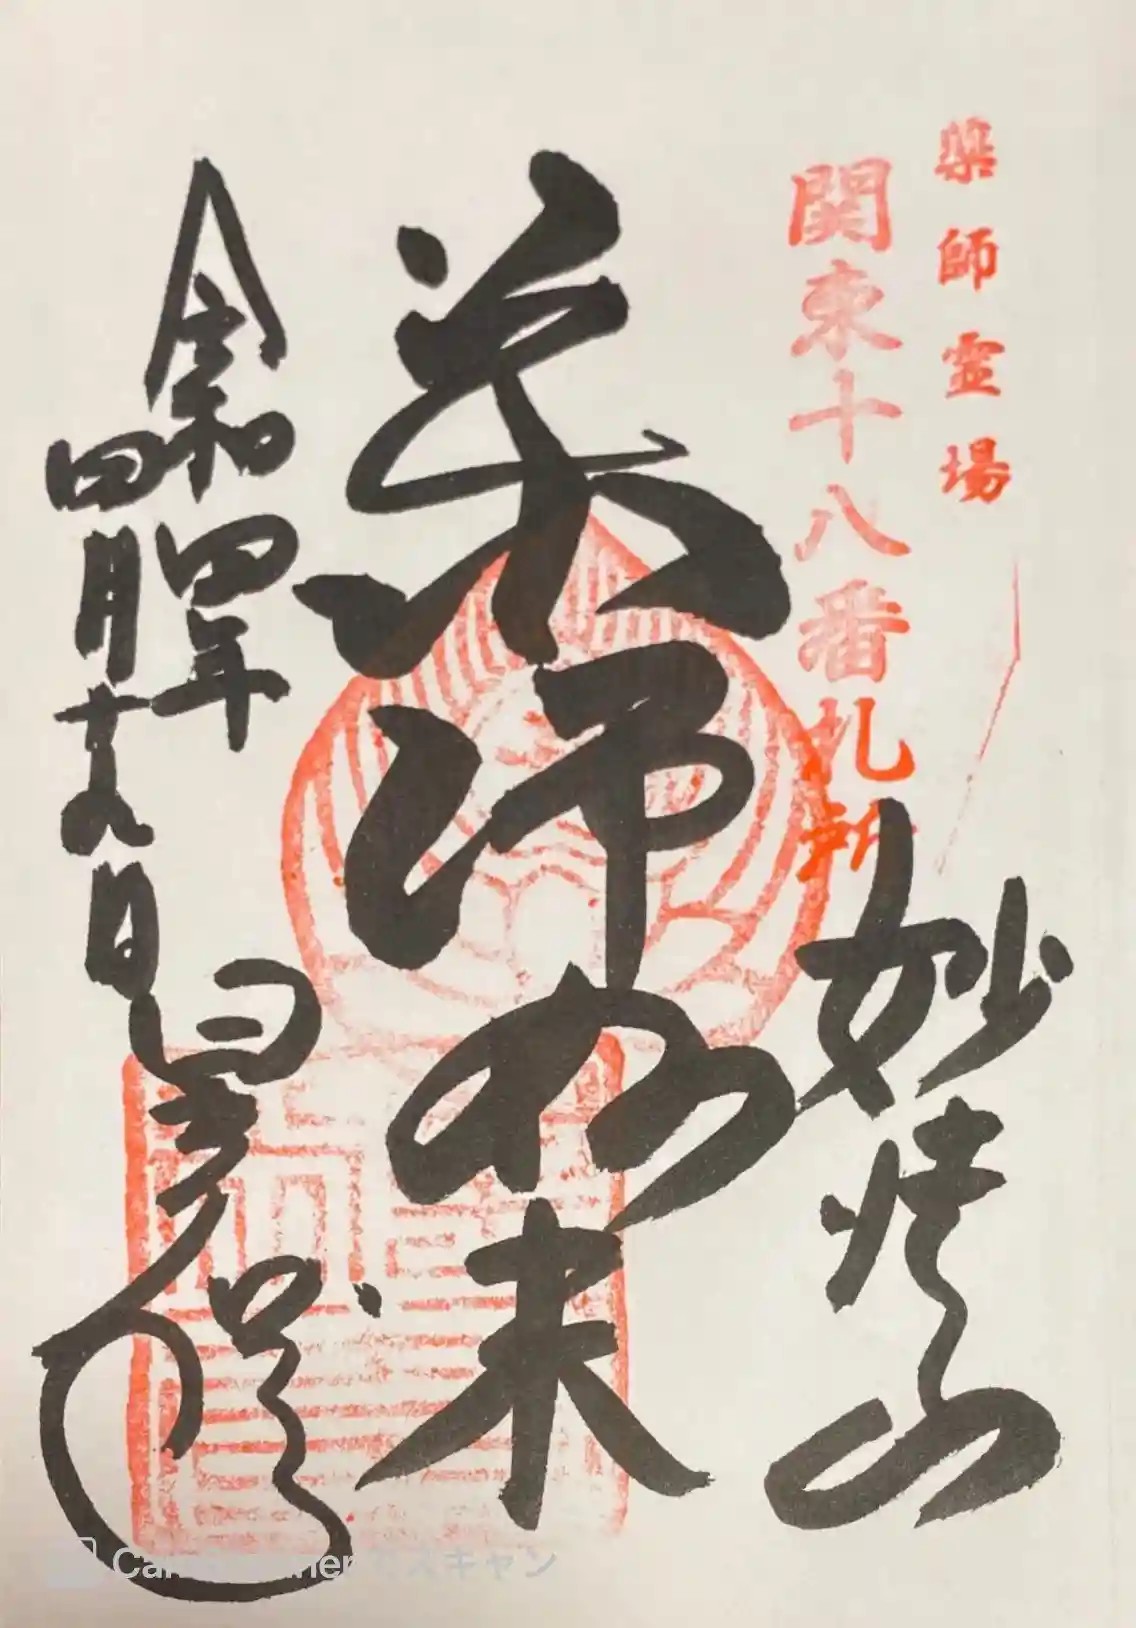 薬師霊場
関東十八番札所
妙 山
薬師如来
令和四年
四月十 日
CamScanner でスキャン